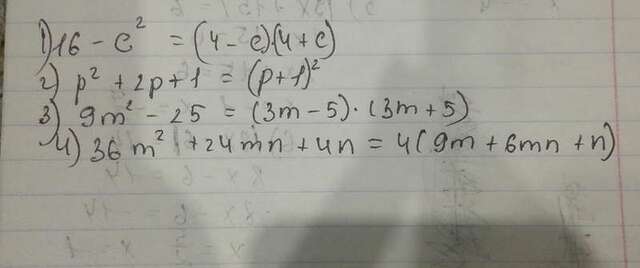 1) 16 - c² = (4 - c)·(4 + c)
2) p² + 2p + 1 = (p+1)²
3) 9m² - 25 = (3m - 5)·(3m + 5)
4) 36m² + 24mn + 4n = 4(9m + 6mn + n)